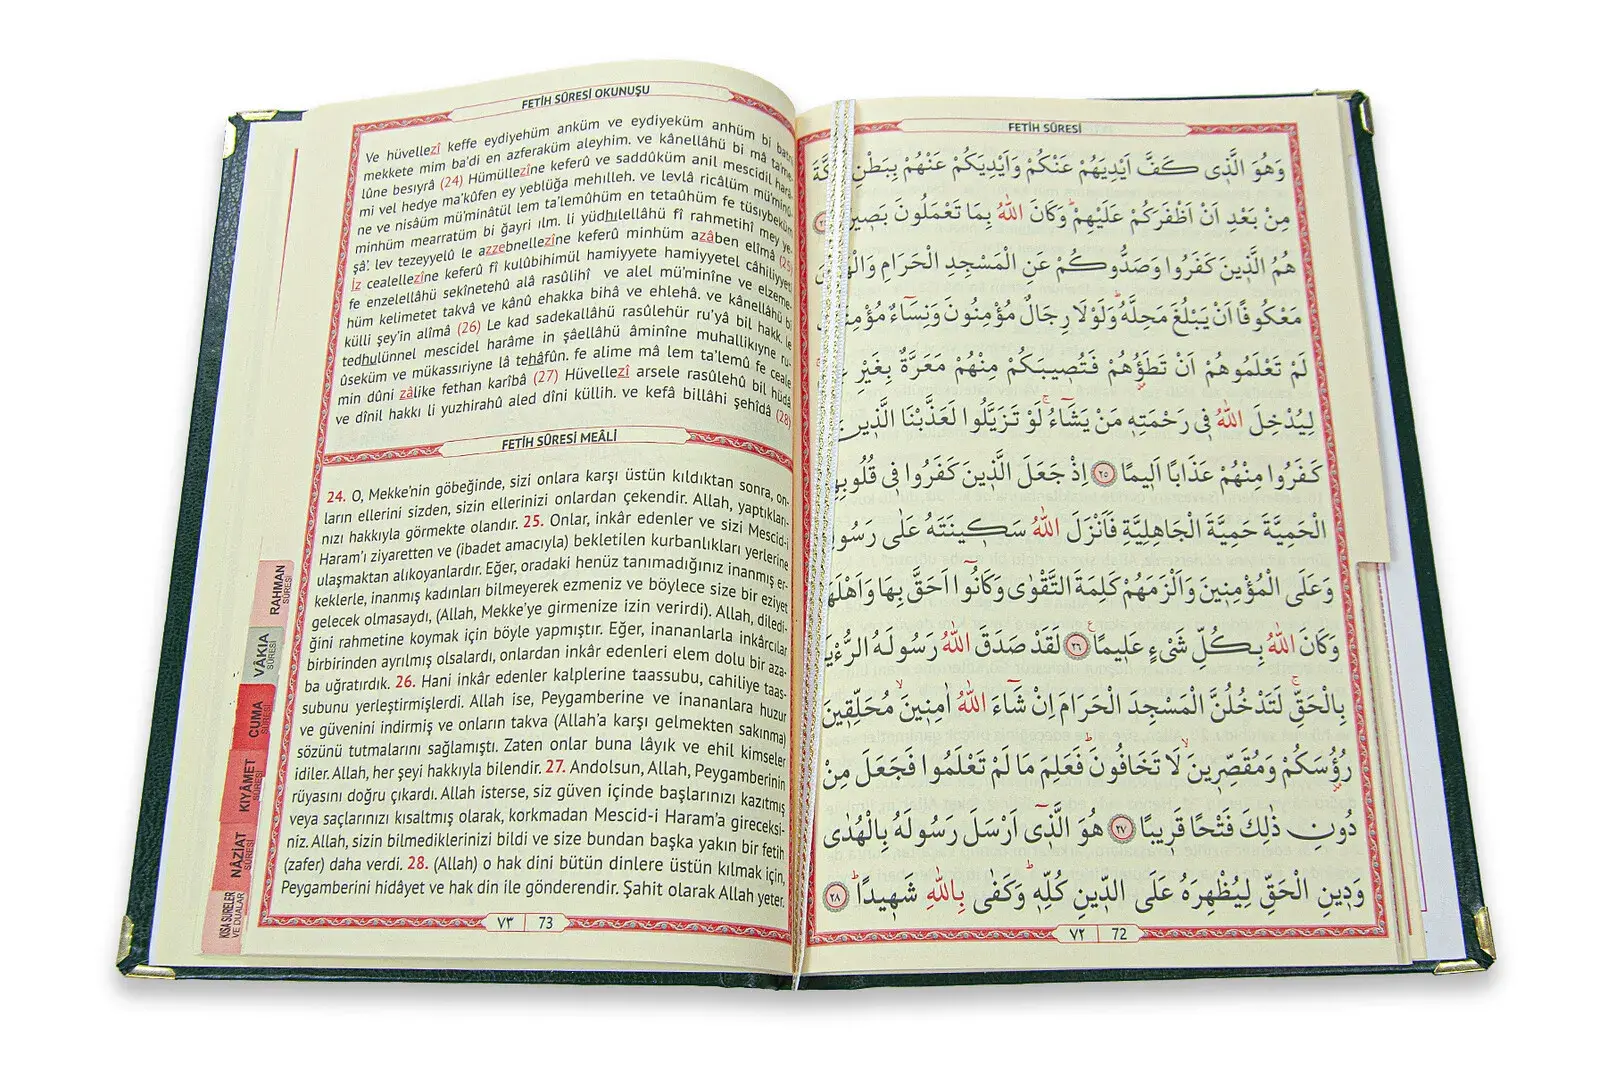 FETİH SÛRESİ OKUNUŞU
Ve hüvellezî keffe eydiyehüm anküm ve eydiyeküm anhüm bi batni
mekkete mim ba'di en azferaküm aleyhim. ve kânellâhü bi mâ ta'me-
lûne besıyrâ (24) Hümüllezîne keferû ve saddûküm anil mescidil harâ-
mi vel hedye ma'kûfen ey yeblüğa mehılleh. ve levlâ ricâlüm mü'minû-
ne ve nisâüm mü'minâtül lem ta'lemûhüm en tetaûhüm fe tüsıybeküm
minhüm mearratüm bi ğayri ılm. li yüdhılellâhü fî rahmetihî mey ye-
şâ'. lev tezeyyelû le azzebnellezîne keferû minhüm azâben elîmâ (25)
İz cealellezîne keferû fî kulûbihimül hamiyyete hamiyyetel câhiliyyeti
fe enzelellâhü sekînetehû alâ rasûlihî ve alel mü'minîne ve elzeme-
hüm kelimetet takvâ ve kânû ehakka bihâ ve ehlehâ. ve kânellâhü bi
külli şey'in alîmâ (26) Le kad sadekallâhü rasûlehür ru'yâ bil hakk. le
tedhulünnel mescidel harâme in şâellâhü âminîne muhallikıyne ru-
ûseküm ve mükassıriyne lâ tehâfûn. fe alime mâ lem ta'lemû fe ceale
min dûni zâlike fethan karîbâ (27) Hüvellezî arsele rasûlehû bil hüdâ
ve dînil hakkı li yuzhirahû aled dîni küllih. ve kefâ billâhi şehîdâ (28)
FETİH SÛRESİ MEÂLİ
24. O, Mekke'nin göbeğinde, sizi onlara karşı üstün kıldıktan sonra, on-
ların ellerini sizden, sizin ellerinizi onlardan çekendir. Allah, yaptıkları-
nızı hakkıyla görmekte olandır. 25. Onlar, inkâr edenler ve sizi Mescid-i
Haram'ı ziyaretten ve (ibadet amacıyla) bekletilen kurbanlıkları yerlerine
ulaşmaktan alıkoyanlardır. Eğer, oradaki henüz tanımadığınız inanmış er-
keklerle, inanmış kadınları bilmeyerek ezmeniz ve böylece size bir eziyet
gelecek olmasaydı, (Allah, Mekke'ye girmenize izin verirdi). Allah, diledi-
ğini rahmetine koymak için böyle yapmıştır. Eğer, inananlarla inkârcılar
birbirinden ayrılmış olsalardı, onlardan inkâr edenleri elem dolu bir aza-
ba uğratırdık. 26. Hani inkâr edenler kalplerine taassubu, cahiliye taas-
subunu yerleştirmişlerdi. Allah ise, Peygamberine ve inananlara huzur
ve güvenini indirmiş ve onların takva (Allah'a karşı gelmekten sakınma)
sözünü tutmalarını sağlamıştı. Zaten onlar buna lâyık ve ehil kimseler
idiler. Allah, her şeyi hakkıyla bilendir. 27. Andolsun, Allah, Peygamberinin
rüyasını doğru çıkardı. Allah isterse, siz güven içinde başlarınızı kazıtmış
veya saçlarınızı kısaltmış olarak, korkmadan Mescid-i Haram'a gireceksi-
niz. Allah, sizin bilmediklerinizi bildi ve size bundan başka yakın bir fetih
(zafer) daha verdi. 28. (Allah) o hak dini bütün dinlere üstün kılmak için,
Peygamberini hidâyet ve hak din ile gönderendir. Şahit olarak Allah yeter.
٧٣ 73
RAHMAN
SÛRESİ
VÂKIA
SÛRESİ
CUMA
SÛRESİ
KIYÂMET
SÛRESİ
NÂZİAT
SÛRESİ
KISA SURELER
VE DUALAR
FETİH SÛRESİ
وَهُوَ الَّذ۪ي كَفَّ اَيْدِيَهُمْ عَنْكُمْ وَاَيْدِيَكُمْ عَنْهُمْ بِبَطْنِ
مِنْ بَعْدِ اَنْ اَظْفَرَكُمْ عَلَيْهِمْۜ وَكَانَ اللّٰهُ بِمَا تَعْمَلُونَ بَص۪يرًا
هُمُ الَّذ۪ينَ كَفَرُوا وَصَدُّوكُمْ عَنِ الْمَسْجِدِ الْحَرَامِ
مَعْكُوفًا اَنْ يَبْلُغَ مَحِلَّهُۜ وَلَوْلَا رِجَالٌ مُؤْمِنُونَ وَنِسَٓاءٌ
لَمْ تَعْلَمُوهُمْ اَنْ تَطَؤُ۫هُمْ فَتُص۪يبَكُمْ مِنْهُمْ مَعَرَّةٌ بِغَيْرِ
لِيُدْخِلَ اللّٰهُ ف۪ي رَحْمَتِه۪ مَنْ يَشَٓاءُۚ لَوْ تَزَيَّلُوا لَعَذَّبْنَا الَّذ۪ينَ
كَفَرُوا مِنْهُمْ عَذَابًا اَل۪يمًا ﴿٢٥﴾ اِذْ جَعَلَ الَّذ۪ينَ كَفَرُوا ف۪ي
الْحَمِيَّةَ حَمِيَّةَ الْجَاهِلِيَّةِ فَاَنْزَلَ اللّٰهُ سَك۪ينَتَهُ عَلٰى
وَعَلَى الْمُؤْمِن۪ينَ وَاَلْزَمَهُمْ كَلِمَةَ التَّقْوٰى وَكَانُٓوا اَحَقَّ بِهَا وَاَهْلَهَا
وَكَانَ اللّٰهُ بِكُلِّ شَيْءٍ عَل۪يمًا۟ ﴿٢٦﴾ لَقَدْ صَدَقَ اللّٰهُ رَسُولَهُ الرُّءْيَا
بِالْحَقِّۚ لَتَدْخُلُنَّ الْمَسْجِدَ الْحَرَامَ اِنْ شَٓاءَ اللّٰهُ اٰمِن۪ينَۙ مُحَلِّق۪ينَ
رُؤُ۫سَكُمْ وَمُقَصِّر۪ينَۙ لَا تَخَافُونَۜ فَعَلِمَ مَا لَمْ تَعْلَمُوا فَجَعَلَ مِنْ
دُونِ ذٰلِكَ فَتْحًا قَر۪يبًا ﴿٢٧﴾ هُوَ الَّذ۪ٓي اَرْسَلَ رَسُولَهُ بِالْهُدٰى
وَد۪ينِ الْحَقِّ لِيُظْهِرَهُ عَلَى الدّ۪ينِ كُلِّه۪ۜ وَكَفٰى بِاللّٰهِ شَه۪يدًاۜ ﴿٢٨﴾
٧٢ 72